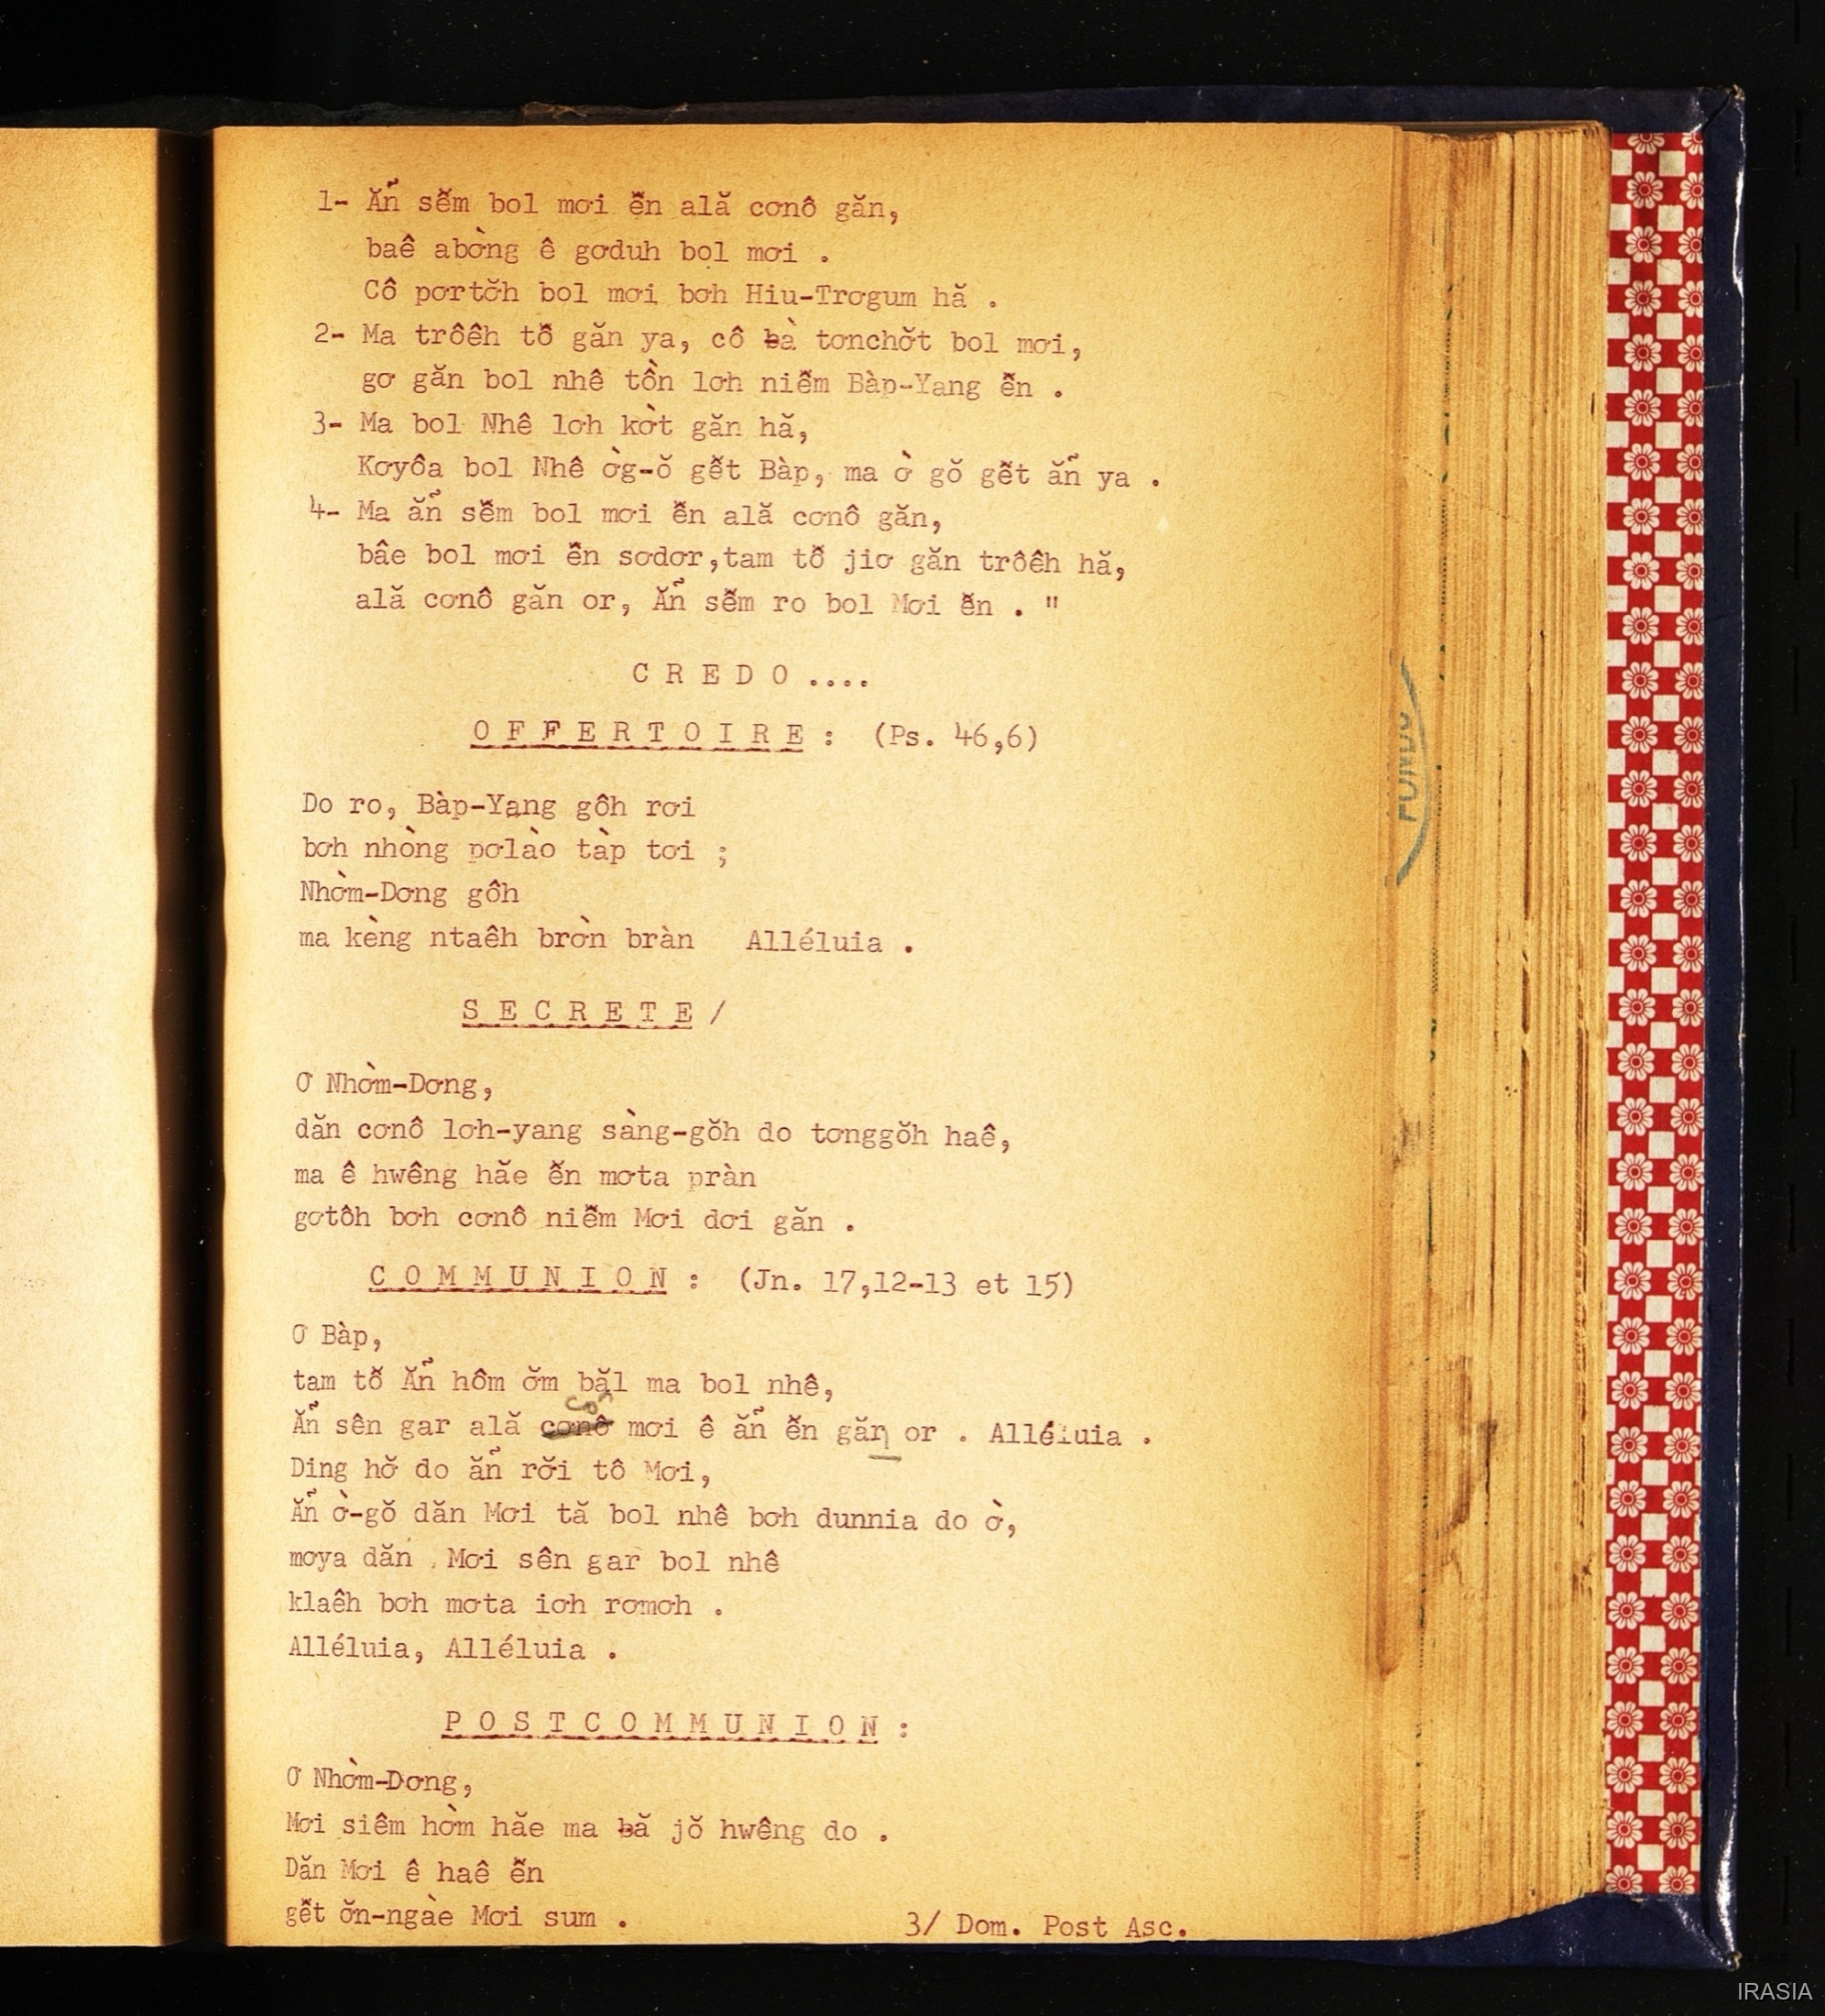 1- Ẳñ sễm bol mơi ễn ală cơnô găn,
baê abờng ê gơduh bol mơi .
Cô pơrtơ̆h bol mơi bơh Hiu-Trơgum hă .
2- Ma trôêh tỗ găn ya, cô ƀà tơnchơ̆t bol mơi,
gơ găn bol nhê tồn lơh niễm Bàp-Yang ễn .
3- Ma bol Nhê lơh kờt găn hă,
Kơyôa bol Nhê ờg-ŏ gễt Bàp, ma ờ gŏ gễt ăñ ya .
4- Ma ăñ sễm bol mơi ễn ală cơnô găn,
bâe bol mơi ễn sơdơr,tam tỗ jiơ găn trôêh hă,
ală cơnô găn or, Ăñ sễm ro bol Mơi ễn . "
C R E D O ....
O F F E R T O I R E : (Ps. 46,6)
Do ro, Bàp-Yang gôh rơi
bơh nhòng pơlào tàp tơi ;
Nhờm-Dơng gôh
ma kèng ntaêh brờn bràn Alléluia .
S E C R E T E /
Ơ Nhờm-Dơng,
dăn cơnô lơh-yang sàng-gŏh do tơnggŏh haê,
ma ê hwêng hăe ễn mơta pràn
gơtôh bơh cơnô niễm Mơi dơi găn .
C O M M U N I O N : (Jn. 17,12-13 et 15)
Ơ Bàp,
tam tỗ Ăñ hôm ơ̆m băl ma bol nhê,
Ăñ sên gar ală mơi ê ăñ ễn găn or . Alléluia .
Ding hơ̆ do ăñ rơ̆i tô Mơi,
Ăñ ờ-gŏ dăn Mơi tă bol nhê bơh dunnia do ờ,
mơya dăn Mơi sên gar bol nhê
klaêh bơh mơta iơh rơmơh .
Alléluia, Alléluia .
P O S T C O M M U N I O N :
Ơ Nhờm-Dơng,
Mơi siêm hờm hăe ma ƀă jŏ hwêng do .
Dăn Mơi ê haê ễn
gễt ơ̆n-ngàe Mơi sum .
3/ Dom. Post Asc.
IRASIA